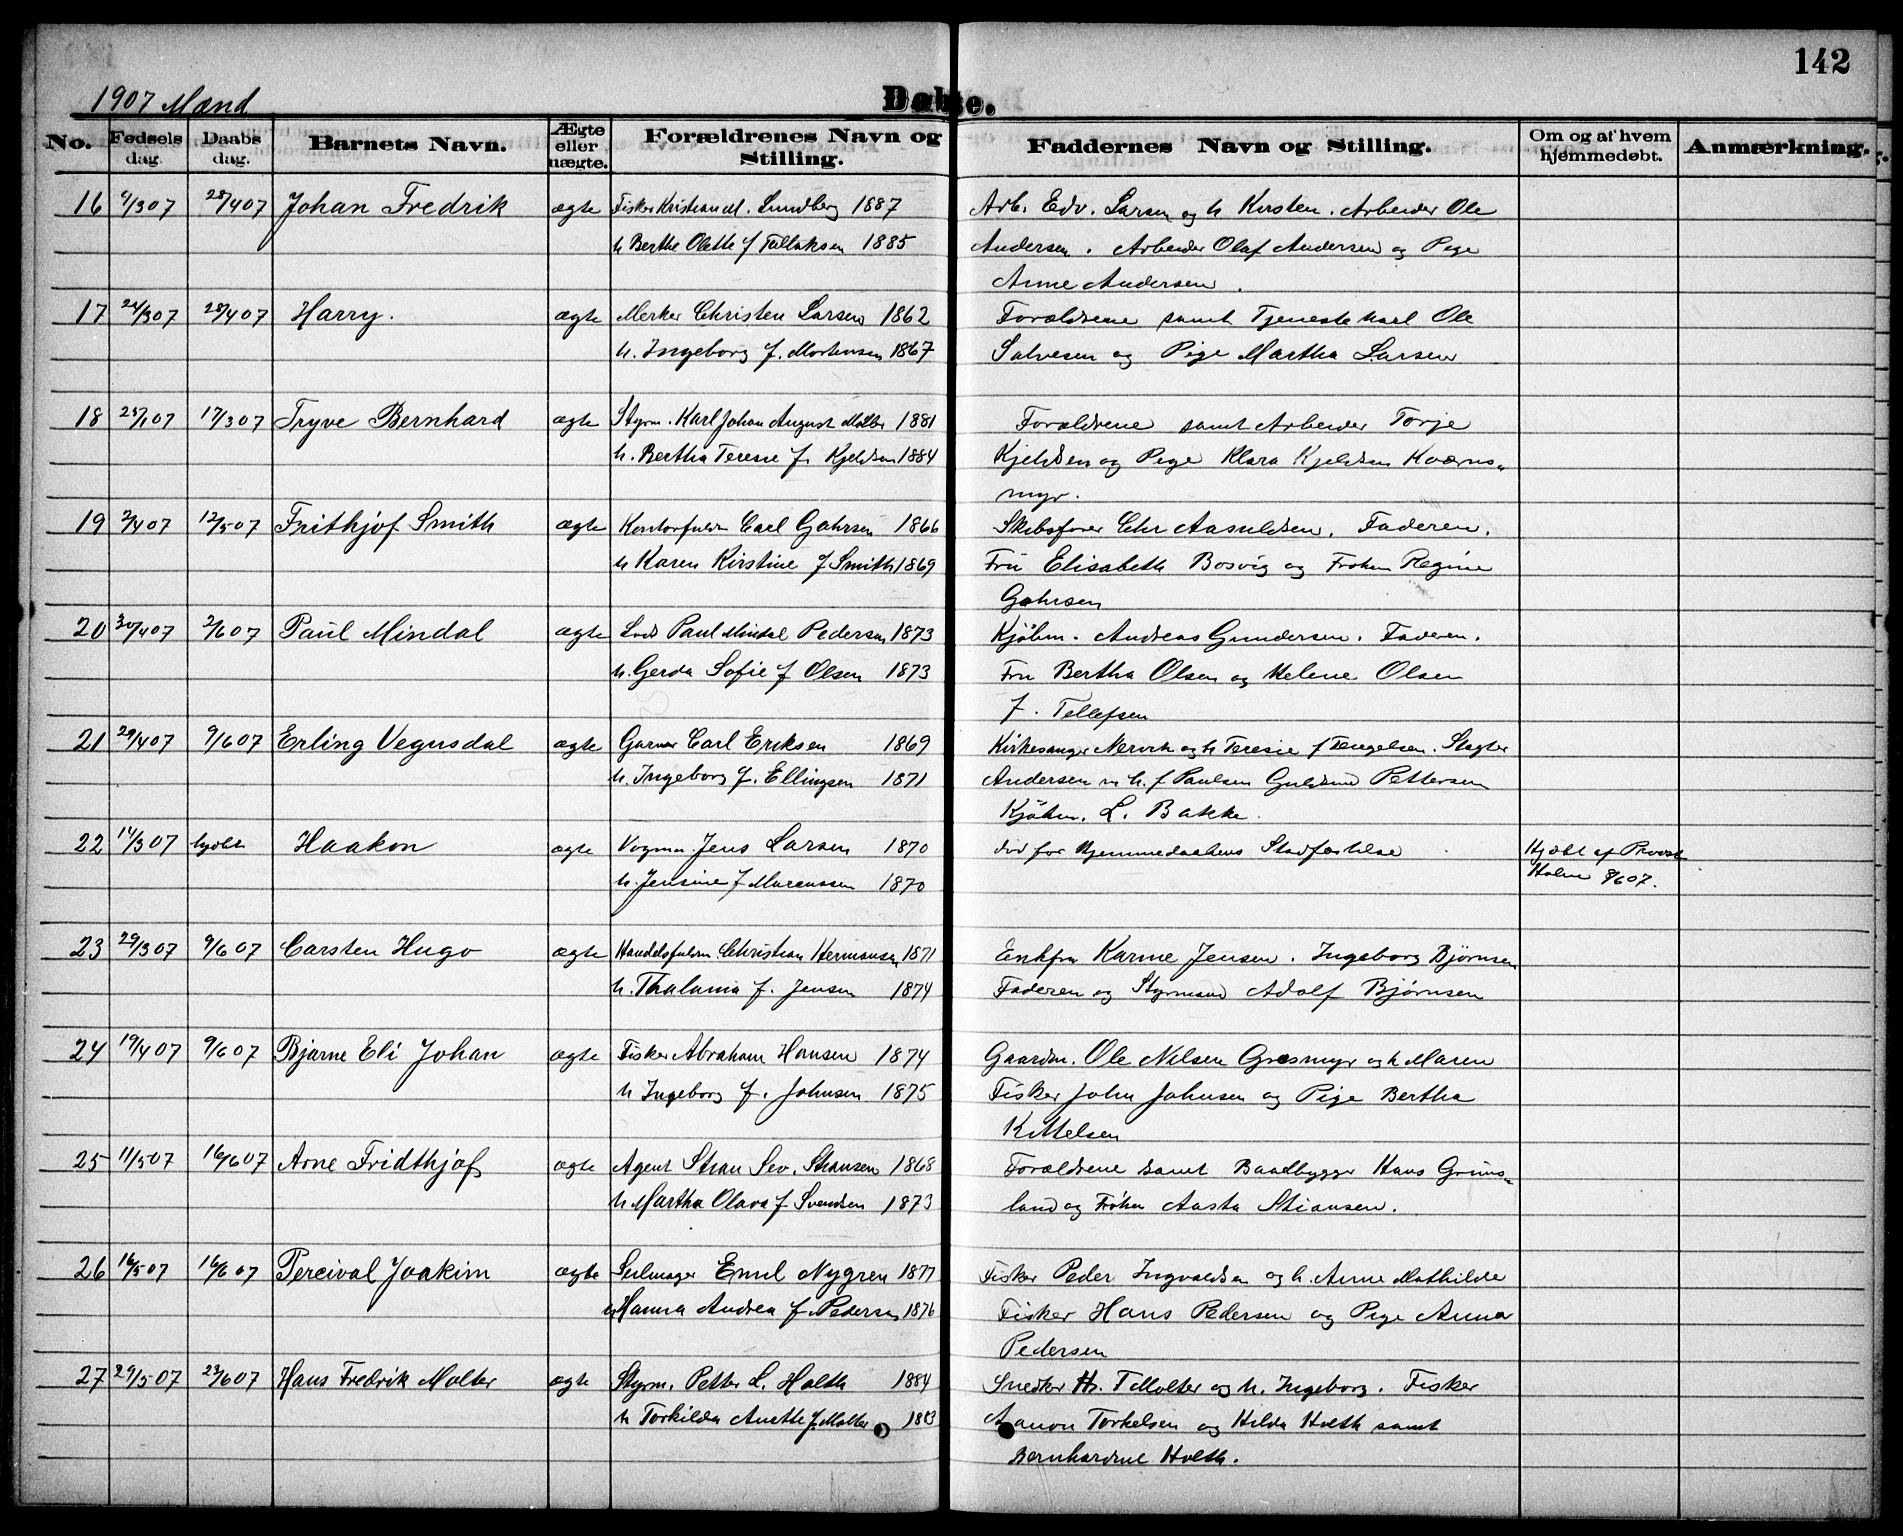 142
1907 Mænd
Døbte.
No. Fødsels dag. Daabs dag. Barnets Navn. Ægte eller uægte. Forældrenes Navn og Stilling. Faddernes Navn og Stilling. Om og af hvem hjemmedøbt. Anmærkning.
16 /307 28/407 Johan Fredrik ægte Fisker Kristian M. Lundberg 1887 Arb. Edv. Larsen og h Kirsten. Arbeider Ole
h Berthe Olette f Tallaksen 1885 Andersen. Arbeider Olaf Andersen og Pige
Anne Andersen.
17 24/307 28/407 Harry. ægte Merker Christen Larsen 1862 Forældrene samt Tjenestekarl Ole
h. Ingeborg f. Mortensen 1867 Salvesen og Pige Martha Larsen
18 25/107 17/307 Tryve Bernhard ægte Styrm. Karl Johan August Møller 1881 Forældrene samt Arbeider Torje
h. Bertha Teresie f. Kjeldsen 1884 Kjeldsen og Pige Klara Kjeldsen Kværns-
myr.
19 2/407 12/507 Frithjof Smith ægte Kontorfuldm Carl Gahrsen 1866 Skibsfører Chr Aasuldsen. Faderen.
h Karen Kirstine f Smith 1869 Fru Elisabeth Bosvig og Frøken Regine
Gahrsen
20 30/407 2/607 Paul Mindal ægte Lods Paul Mindal Pedersen 1873 Kjøbm. Andreas Gundersen. Faderen.
h. Gerda Sofie f Olsen 1873 Fru Bertha Olsen og Helene Olsen
f. Tellefsen
21 29/407 9/607 Erling Vegusdal ægte Garver Carl Eriksen 1869 Kirkesanger Nervik og h Teresie f Tengelsen. Slagter
h. Ingeborg f. Ellingsen 1871 Andersen m h. f Paulsen Guldsmed Pettersen
Kjøbm. L. Bakke.
22 14/307 hjdbt Haakon ægte Vognm. Jens Larsen 1870 død før Hjemmedaabens Stadfæstelse Hjdbt af Provst
h. Jensine f Marcussen 1870 Holm 8/607.
23 29/307 9/607 Carsten Hugo ægte Handelsfuldm. Christian Hermansen 1871 Enkefru Karine Jensen. Ingeborg Bjørnsen
h. Thalania f. Jensen 1874 Faderen og Styrmand Adolf Bjørnsen
24 19/407 9/607 Bjarne Eli Johan ægte Fisker Abraham Hansen 1874 Gaardm. Ole Nilsen Græsmyr og h Maren
h Ingeborg f. Johnsen 1875 Fisker John Johnsen og Pige Bertha
Kittelsen
25 11/507 16/607 Arne Fridthjof ægte Agent Stian Sev. Stiansen 1868 Forældrene samt Baadbygger Hans Grims-
h Martha Olava f Svendsen 1873 land og Frøken Aasta Stiansen.
26 16/507 16/607 Percival Joakim ægte Seilmager Emil Nygren 1877 Fisker Peder Ingvaldsen og h. Anne Mathilde
h Hanna Andrea f Pedersen 1876 Fisker Hans Pedersen og Pige Anna
Pedersen
27 29/507 23/607 Hans Fredrik Molter ægte Styrm. Petter L. Holth 1884 Snedker Hr. T Molter og h. Ingeborg. Fisker
h Torkilda Anette f. Molter 1883 Aanon Torkelsen og Hilda Holth samt
Bernhardine Holth.